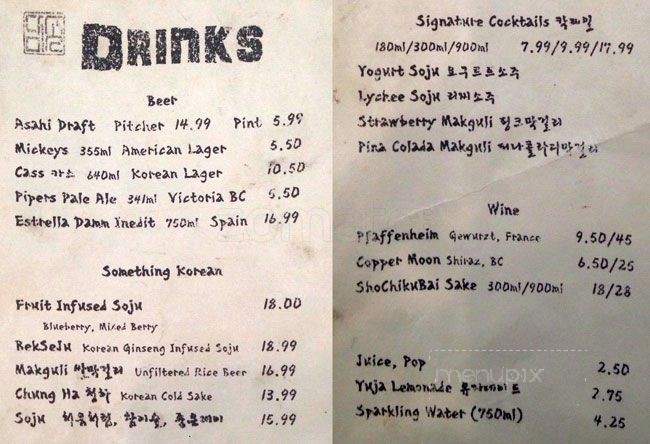 DRINKS
Beer
Asahi Draft Pitcher 14.99 Pint 5.99
Mickeys 355ml American Lager 5.50
Cass 카스 640ml Korean Lager 10.50
Pipers Pale Ale 341ml Victoria BC 5.50
Estrella Damm Inedit 750ml Spain 16.99
Something Korean
Fruit Infused Soju 18.00
Blueberry, Mixed Berry
BekSeJu Korean Ginseng Infused Soju 18.99
Makguli 쌀막걸리 Unfiltered Rice Beer 16.99
Chung Ha 청하 Korean Cold Sake 13.99
Soju 처음처럼, 참이슬, 좋은데이 15.99
Signature Cocktails 칵테일
180ml/300ml/900ml 7.99/9.99/17.99
Yogurt Soju 요구르트소주
Lychee Soju 리찌소주
Strawberry Makguli 핑크막걸리
Pina Colada Makguli 피나콜라다막걸리
Wine
Pfaffenheim Gewurzt, France 9.50/45
Copper Moon Shiraz, BC 6.50/25
ShoChikuBai Sake 300ml/900ml 18/28
Juice, Pop 2.50
menupix
Yuja Lemonade 유자에이드 2.75
Sparkling Water (750ml) 4.25